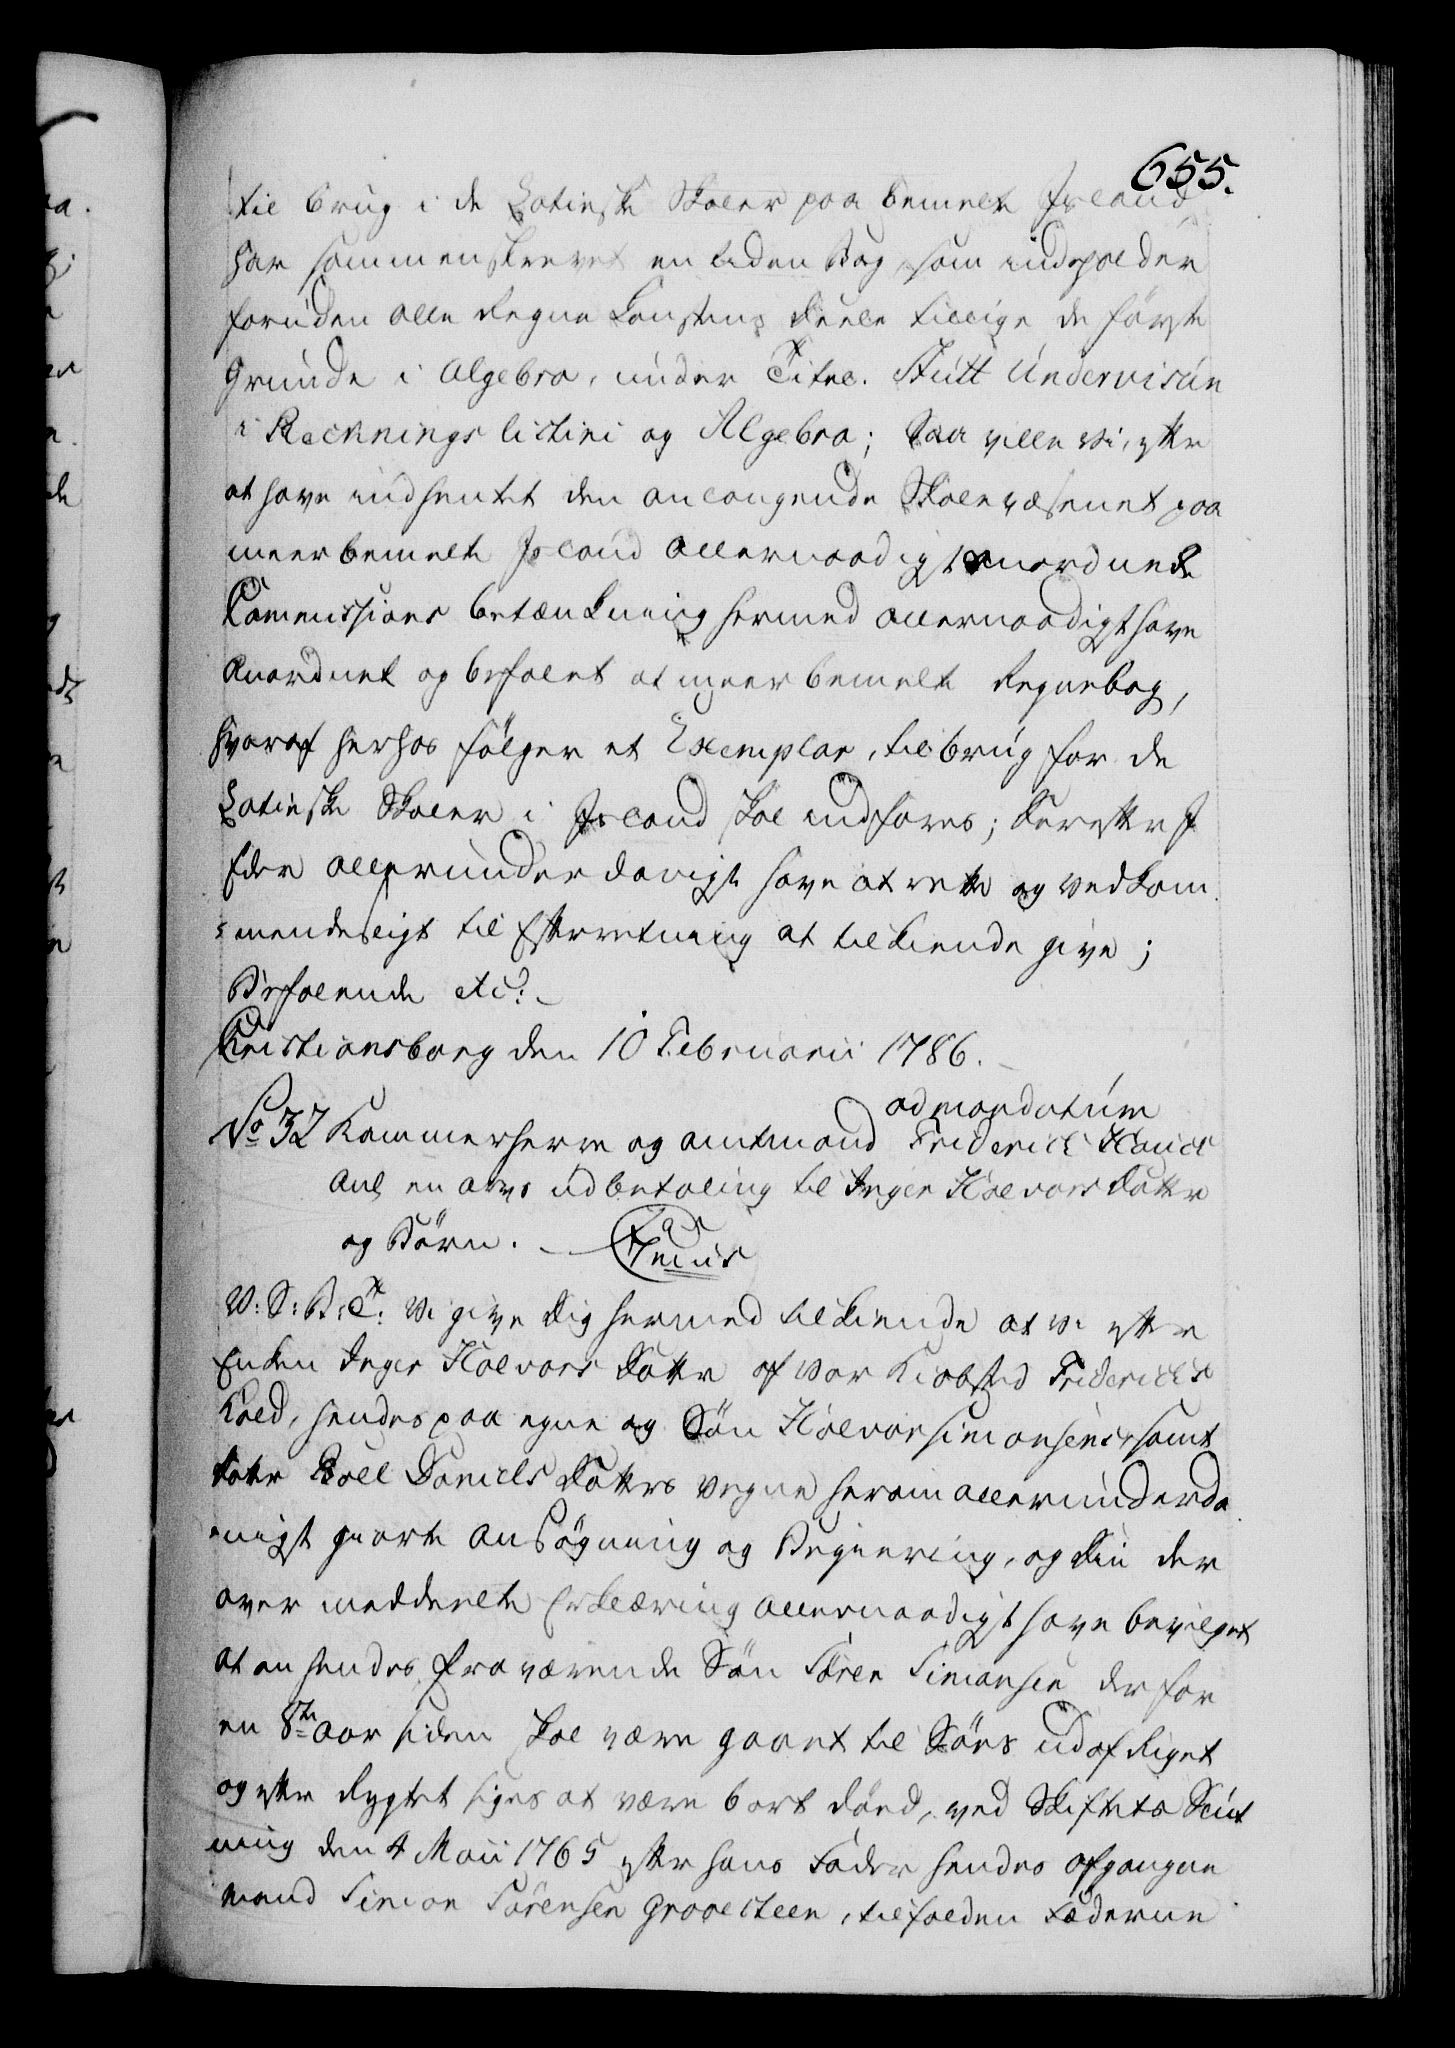 655.
til brug i de Latinske Skoler paa bemelte Island
har sammenskrevet en liden Bog, som indeholder
foruden alle Regne Konstens Deele tillige de første
Grunde i Algebra, under Titel. Stutt Undervisun
i Reckningslistini og Algebra; Saa ville Vi, efter
at have indhentet den anlangende Skolevæsenet paa
meerbemelte Island Allernaadigst anordnede
Commissions betænkning hermed allernaadigst have
Anordnet og befalet at meerbemelte Regnebog,
hvoraf herhos følger et Exemplar, til brug for de
Latinske Skoler i Island skal indføres; Derefter I
Eder allerunderdanigst have at rette og vedkom
mendeligt til Efterretning at tilkiende give;
Befalende etc:
Christiansborg den 10 Februarii 1786.
ad mandatum
No 32 Kammerherre og amtmand Friderich Hauch
Anl en arvs udbetaling til Inger Halvors Datter
og Børn.
V: S: B: T: Vi give Dig hermed tilkiende at Vi efter
Enken Inger Halvors Datter af Vor Kiøbsted Friderichs
hald, hendes paa egne og Søn Halvor Simonsens, samt
Datter Boel Daniels Datters vegne herom allerunderda
nigst giorte Ansøgning og Begiering, og Din der
over meddeelte Erklæring allernaadigst have bevilget
at en hendes fraværende Søn Søren Simonsen der for
en 8te Aar siden skal være gaaet til Søes ud af Riget
og efter Rygtet siges at være bort død, ved Skiftets Slut
ning den 4 Maii 1765 efter hans Fader hendes afgangne
mand Simon Sørensen Graaesteen, tilfalden Fæderne